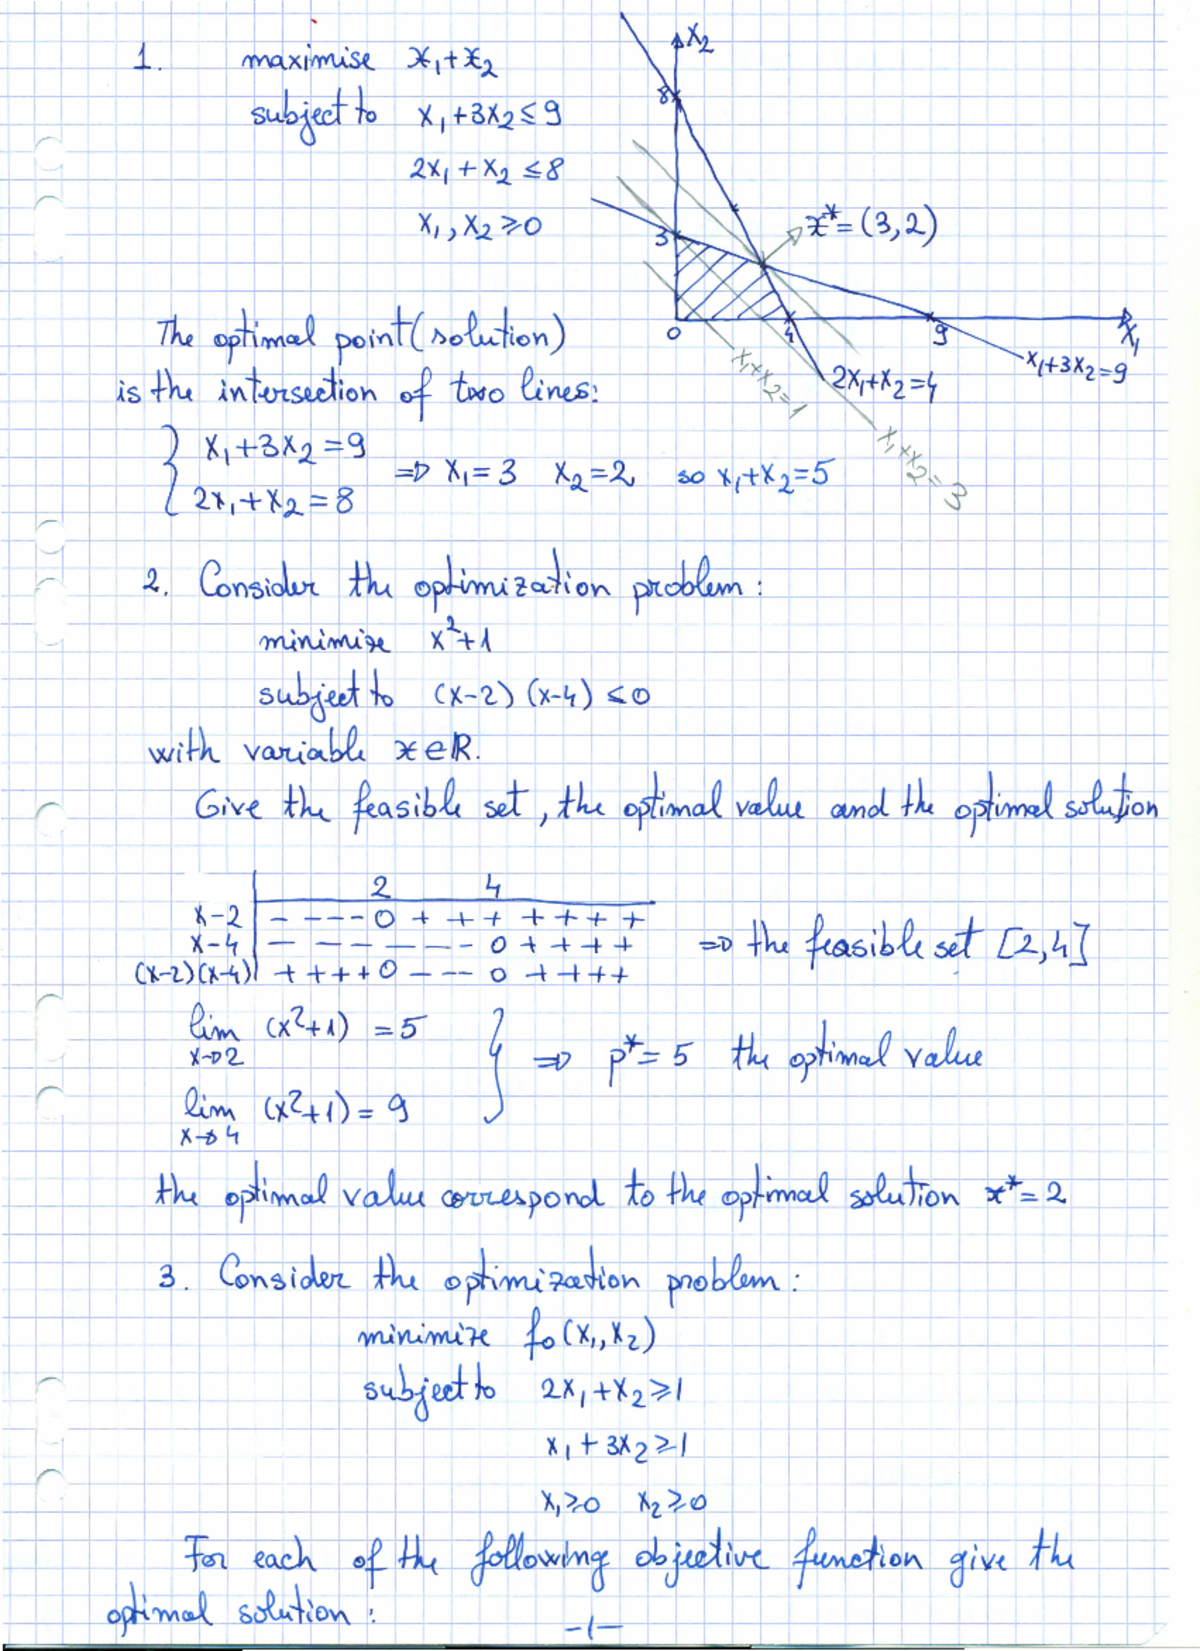 1. maximise x₁+x₂
subject to x₁+3x₂≤9
2x₁+x₂≤8
x₁,x₂≥0
x₂
8
3
0
4
9
x₁
x*=(3,2)
x₁+3x₂=9
2x₁+x₂=4
x₁+x₂=1
x₁+x₂=3
The optimal point (solution)
is the intersection of two lines:
{ x₁+3x₂=9
2x₁+x₂=8
⇒ x₁=3 x₂=2, so x₁+x₂=5
2. Consider the optimization problem:
minimize x²+1
subject to (x-2)(x-4)≤0
with variable x∈R.
Give the feasible set, the optimal value and the optimal solution
2 4
x-2 | - - - - 0 + + + + + + +
x-4 | - - - - - - - 0 + + + +
(x-2)(x-4) | + + + + 0 - - - 0 + + + +
⇒ the feasible set [2,4]
lim (x²+1) = 5
x→2
} ⇒ p*=5 the optimal value
lim (x²+1) = 9
x→4
the optimal value correspond to the optimal solution x*=2
3. Consider the optimization problem:
minimize f₀(x₁,x₂)
subject to 2x₁+x₂≥1
x₁+3x₂≥1
x₁≥0 x₂≥0
For each of the following objective function give the
optimal solution:
-1-